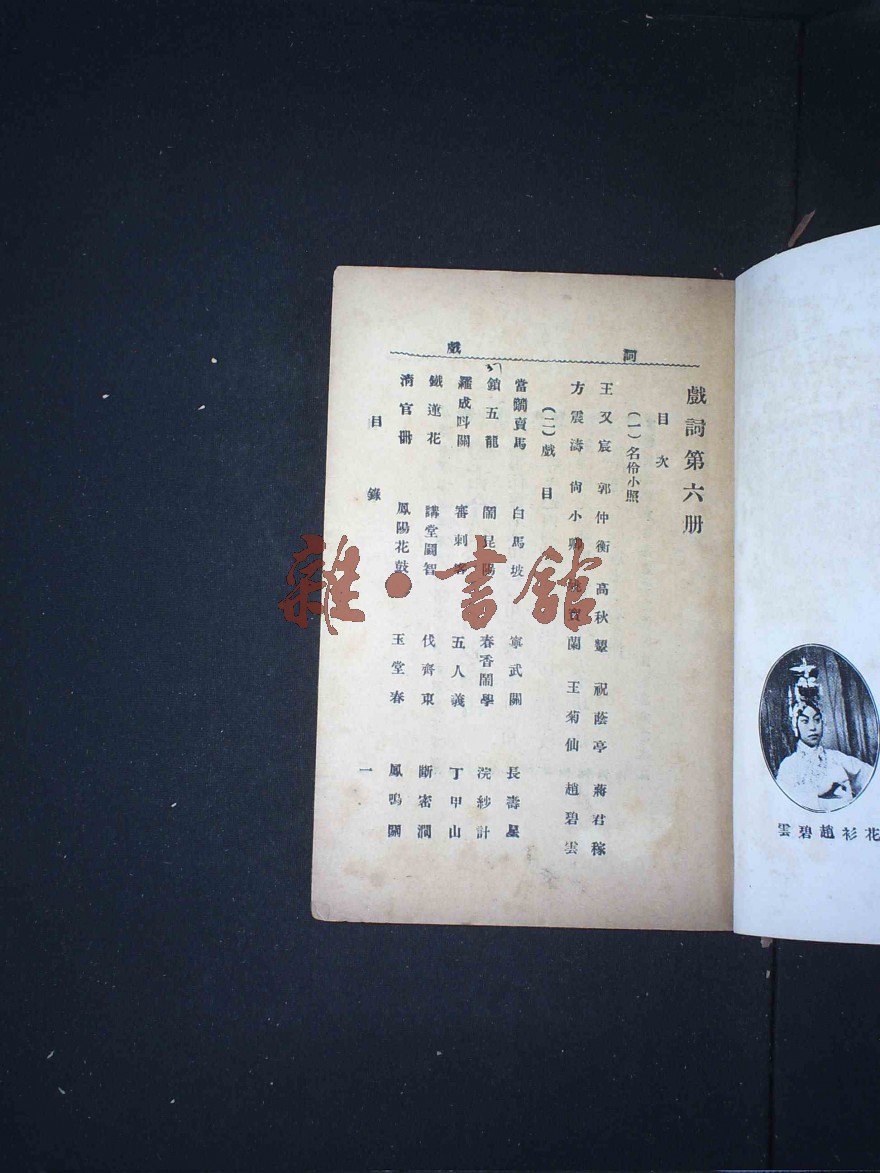 詞戲
戲詞第六册
目次
(一)名伶小照
王又宸 郭仲衡 高秋顰 祝蔭亭 蔣君稼
方震濤 尙小 蘭 王菊仙 趙碧雲
(二)戲目
當鐗賣馬 白馬坡 寧武關 長壽星
鎖五龍 鬧昆陽 春香鬧學 浣紗計
羅成叫關 審刺客 五人義 丁甲山
鐵蓮花 講堂鬬智 伐齊東 斷密澗
淸官册 鳳陽花鼓 玉堂春 鳳鳴關
目錄
一
花衫趙碧雲
雜·書館